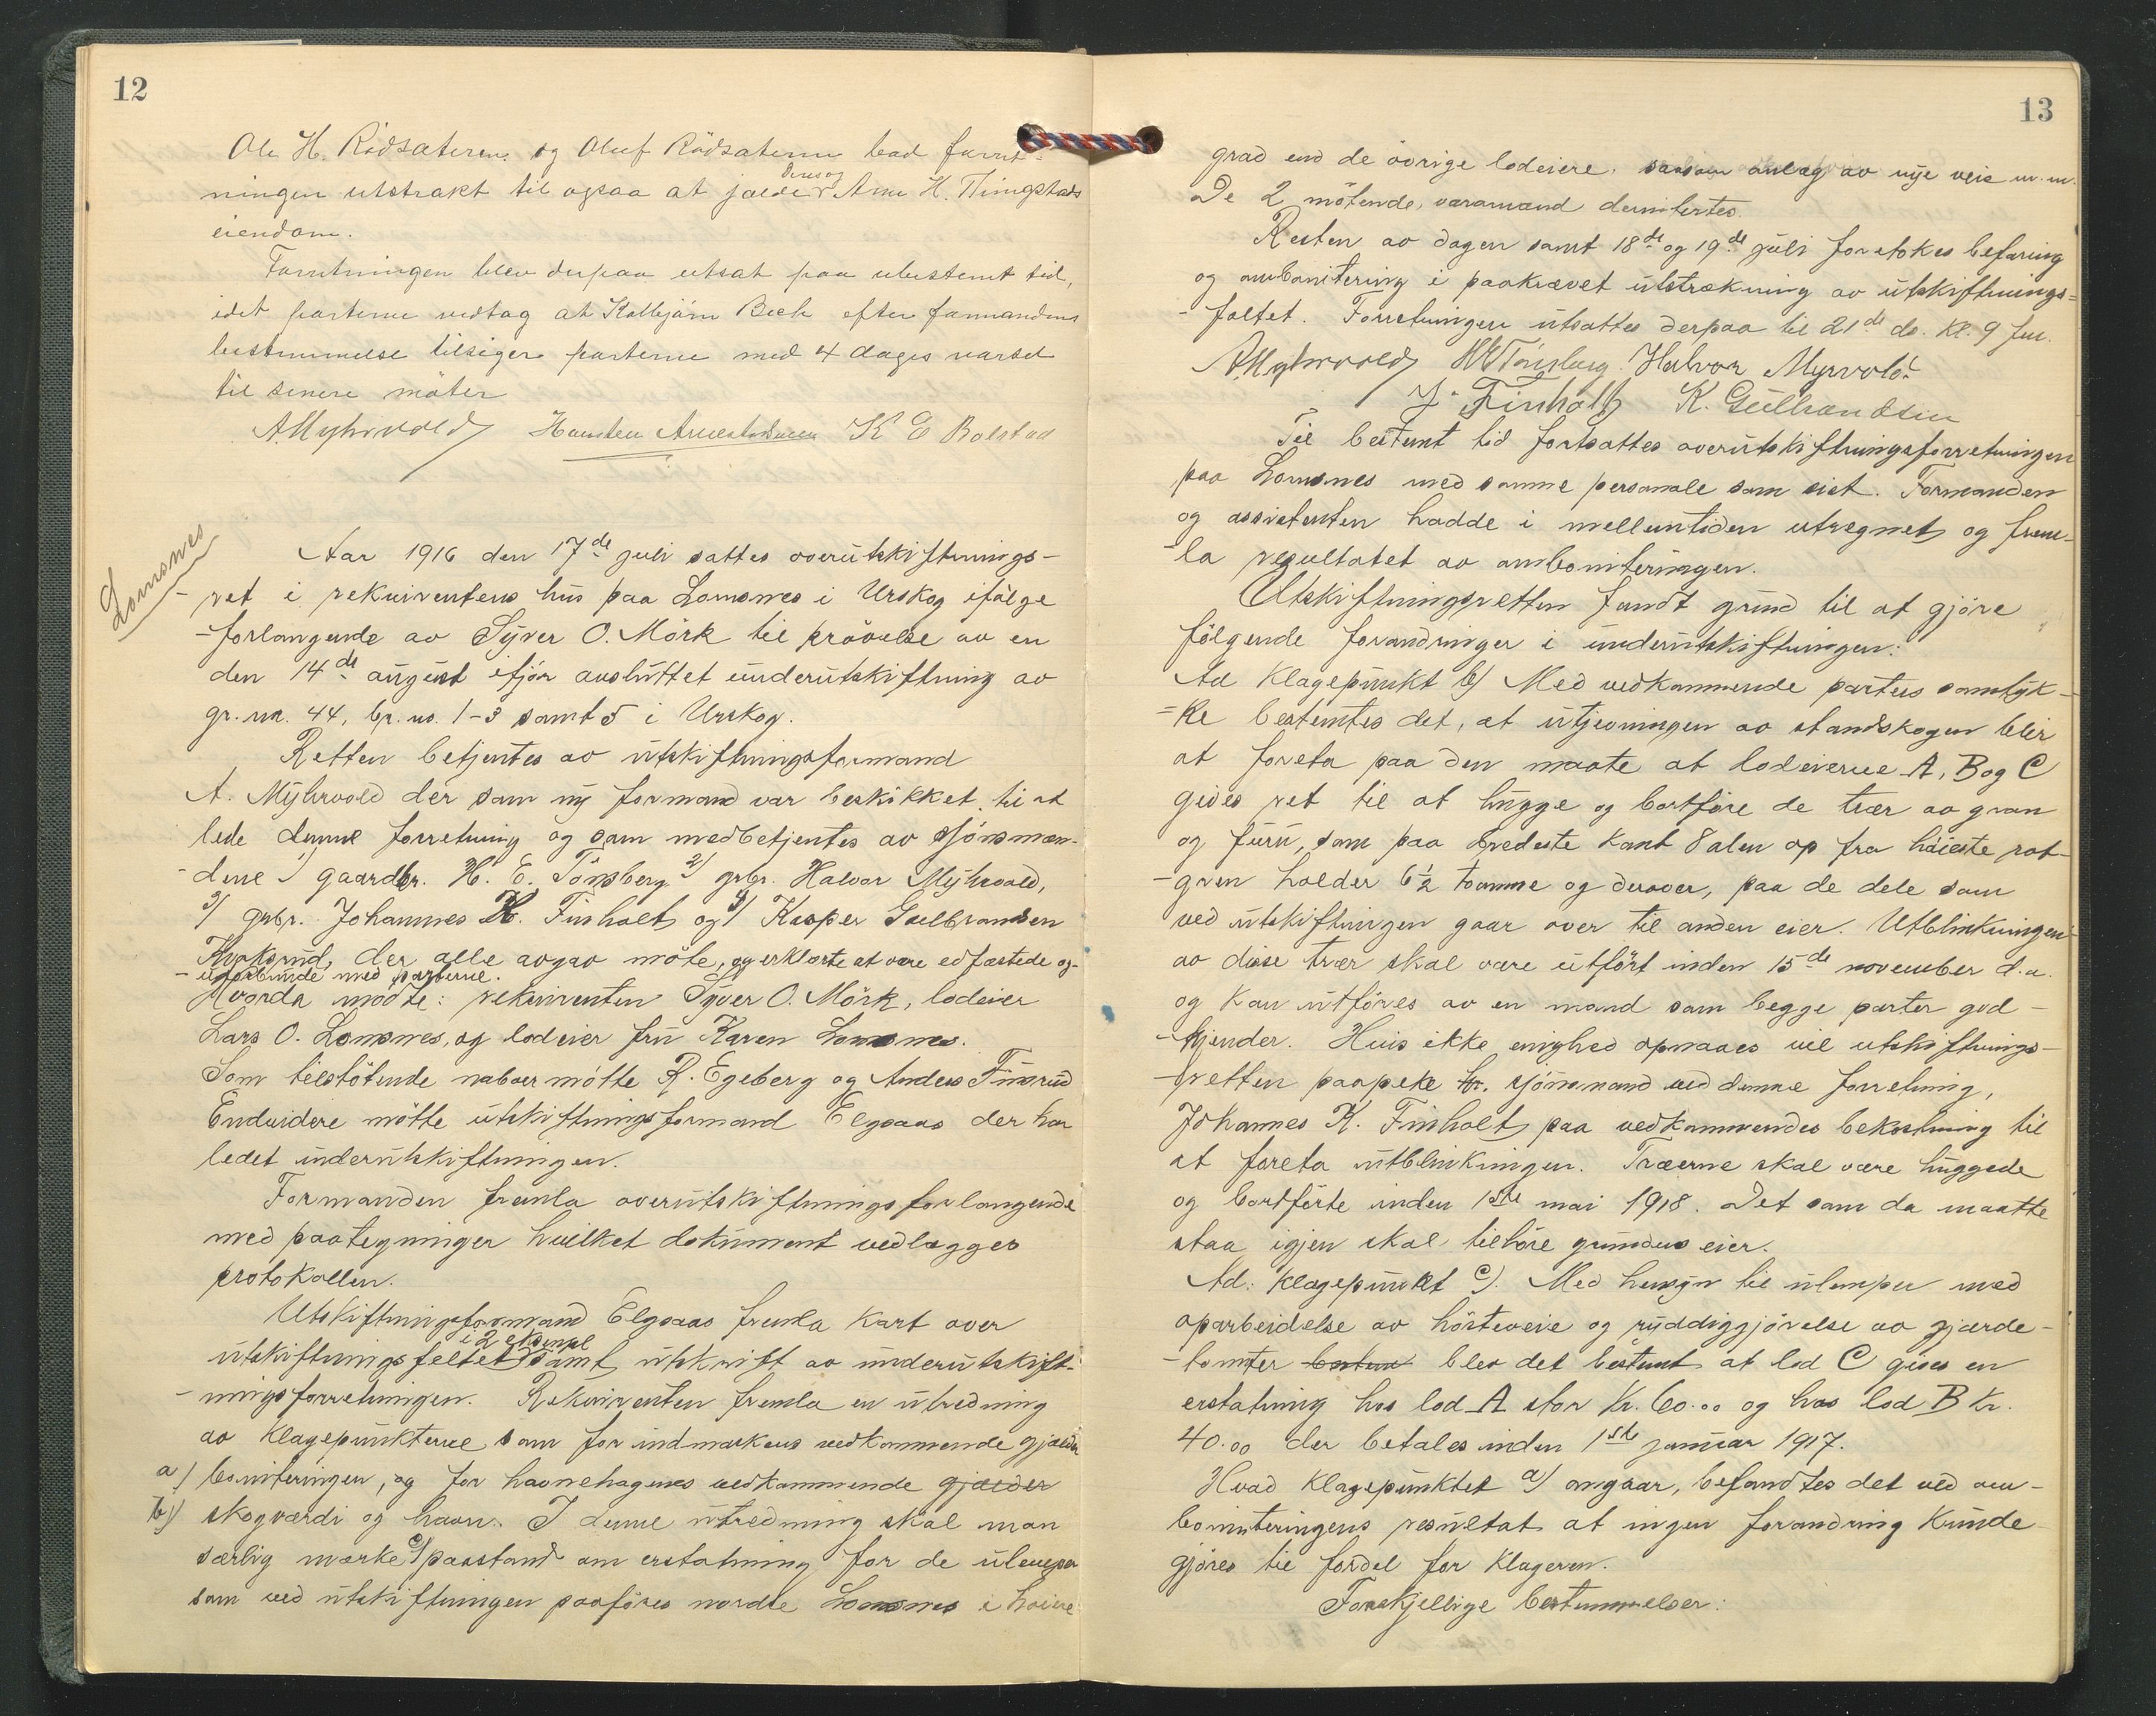 12
Ole H. Rödsæteren og Oluf Rödsæteren bad forret-
ningen utstrakt til ogsaa at gjælde Arne H. Tingstads
eiendom.
Forretningen blev derpaa utsat paa ubestemt tid,
idet parterne vedtog at Kolbjörn Bech efter formandens
bestemmelse tilsiger parterne med 4 dages varsel
til senere möter
AMyhrvold K E Bolstad
Lomsnes
Aar 1916 den 17de juli sattes overutskiftnings-
-ret i rekvirentens hus paa Lomsnes i Urskog ifölge
-forlangende av Syver O. Mörk til prövelse av en
den 14de august ifjor avsluttet underutskiftning av
gr. nr. 44, br. no. 1-3 samt 5 i Urskog.
Retten betjentes av utskiftningsformand
A. Myhrvold der som ny formand var beskikket til at
lede denne forretning og som medbetjentes av skjönsmæn-
-dene 1) gaardbr. H. E. Tönsberg 2) grbr. Halvor Myhrvold,
3) grbr. Johannes K. Finholt og 4) Kasper Gulbrandsen
der alle avgav möte, og erklærte at være edfæstede og
-uforbundne med parterne.
Hvorda mödte: rekvirenten Syver O. Mörk, lodeier
Lars O. Lomsnes, og lodeier fru Karen Lomsnes.
Som tilstötende naboer mötte R. Egeberg og Anders Finsrud
Endvidere mötte utskiftningsformand Elgsaas der har
ledet underutskiftningen.
Formanden fremla overutskiftningsforlangende
med paategninger hvilket dokument vedlægges
protokollen.
Utskiftningsformand Elgsaas fremla kart over
i 2 eksempl
utskiftningsfeltet samt utskrift av underutskift-
-ningsforretningen. Rekvirenten fremla en utredning
av klagepunkterne som for indmarkens vedkommende gjælder
a) boniteringen, og for havnehagenes vedkommende gjælder
b) skogværdi og havn. I denne utredning skal man
særlig merke c) paastand om erstatning for de ulemper
som ved utskiftningen paaföres nordre Lomsnes i höiere
13
grad end de övrige lodeiere, saasom anlæg av nye veie m.m.
De 2 mötende varamænd demitertes.
Resten av dagen samt 18de og 19de juli foretokes befaring
og ombonitering i paakrævet utstrækning av utskiftnings-
-feltet. Forretningen utsattes derpaa til 21de ds. kl. 9 fm.
AMyhrvold HETönsberg Halvor Myrvold
J. Finholt K. Gulbrandsen
Til bestemt tid fortsattes overutskiftningsforretningen
paa Lomsnes med samme personale som sist. Formanden
og assistenten hadde i mellemtiden utregnet og frem-
-la resultatet av omboniteringen.
Utskiftningsretten fandt grund til at gjöre
fölgende forandringer i underutskiftningen:
Ad klagepunkt b) Med vedkommende parters samtyk-
-ke bestemtes det, at utjevningen av standskogen blir
at foreta paa den maate at lodeierne A, B og C
gives ret til at hugge og bortföre de trær av gran
og furu, som paa bredeste kant 8 alen op fra höieste rot-
-gren holder 6½ tomme og derover, paa de dele som
ved utskiftningen gaar over til anden eier. Utblinkningen
av disse trær skal være utfört inden 15de november d.a.
og kan utföres av en mand som begge parter god-
-kjender. Hvis ikke enighed opnaaes vil utskiftnings-
-retten paapeke hr. skjönsmand ved denne forretning,
Johannes K. Finholt paa vedkommendes bekostning til
at foreta utblinkningen. Træerne skal være huggede
og bortförte inden 1ste mai 1918. Det som da maatte
staa igjen skal tilhöre grundens eier.
Ad. klagepunkt c). Med hensyn til ulemper med
oparbeidelse av hösteveie og ryddiggjörelse av gjærde-
-tomter blev det bestemt at lod C gives en
erstatning hos lod A stor kr. 60.00 og hos lod B kr.
40.00 der betales inden 1ste januar 1917.
Hvad klagepunktet a) angaar, befandtes det ved om-
boniteringens resultat at ingen forandring kunde
gjöres til fordel for klageren.
Forskjellige bestemmelser: